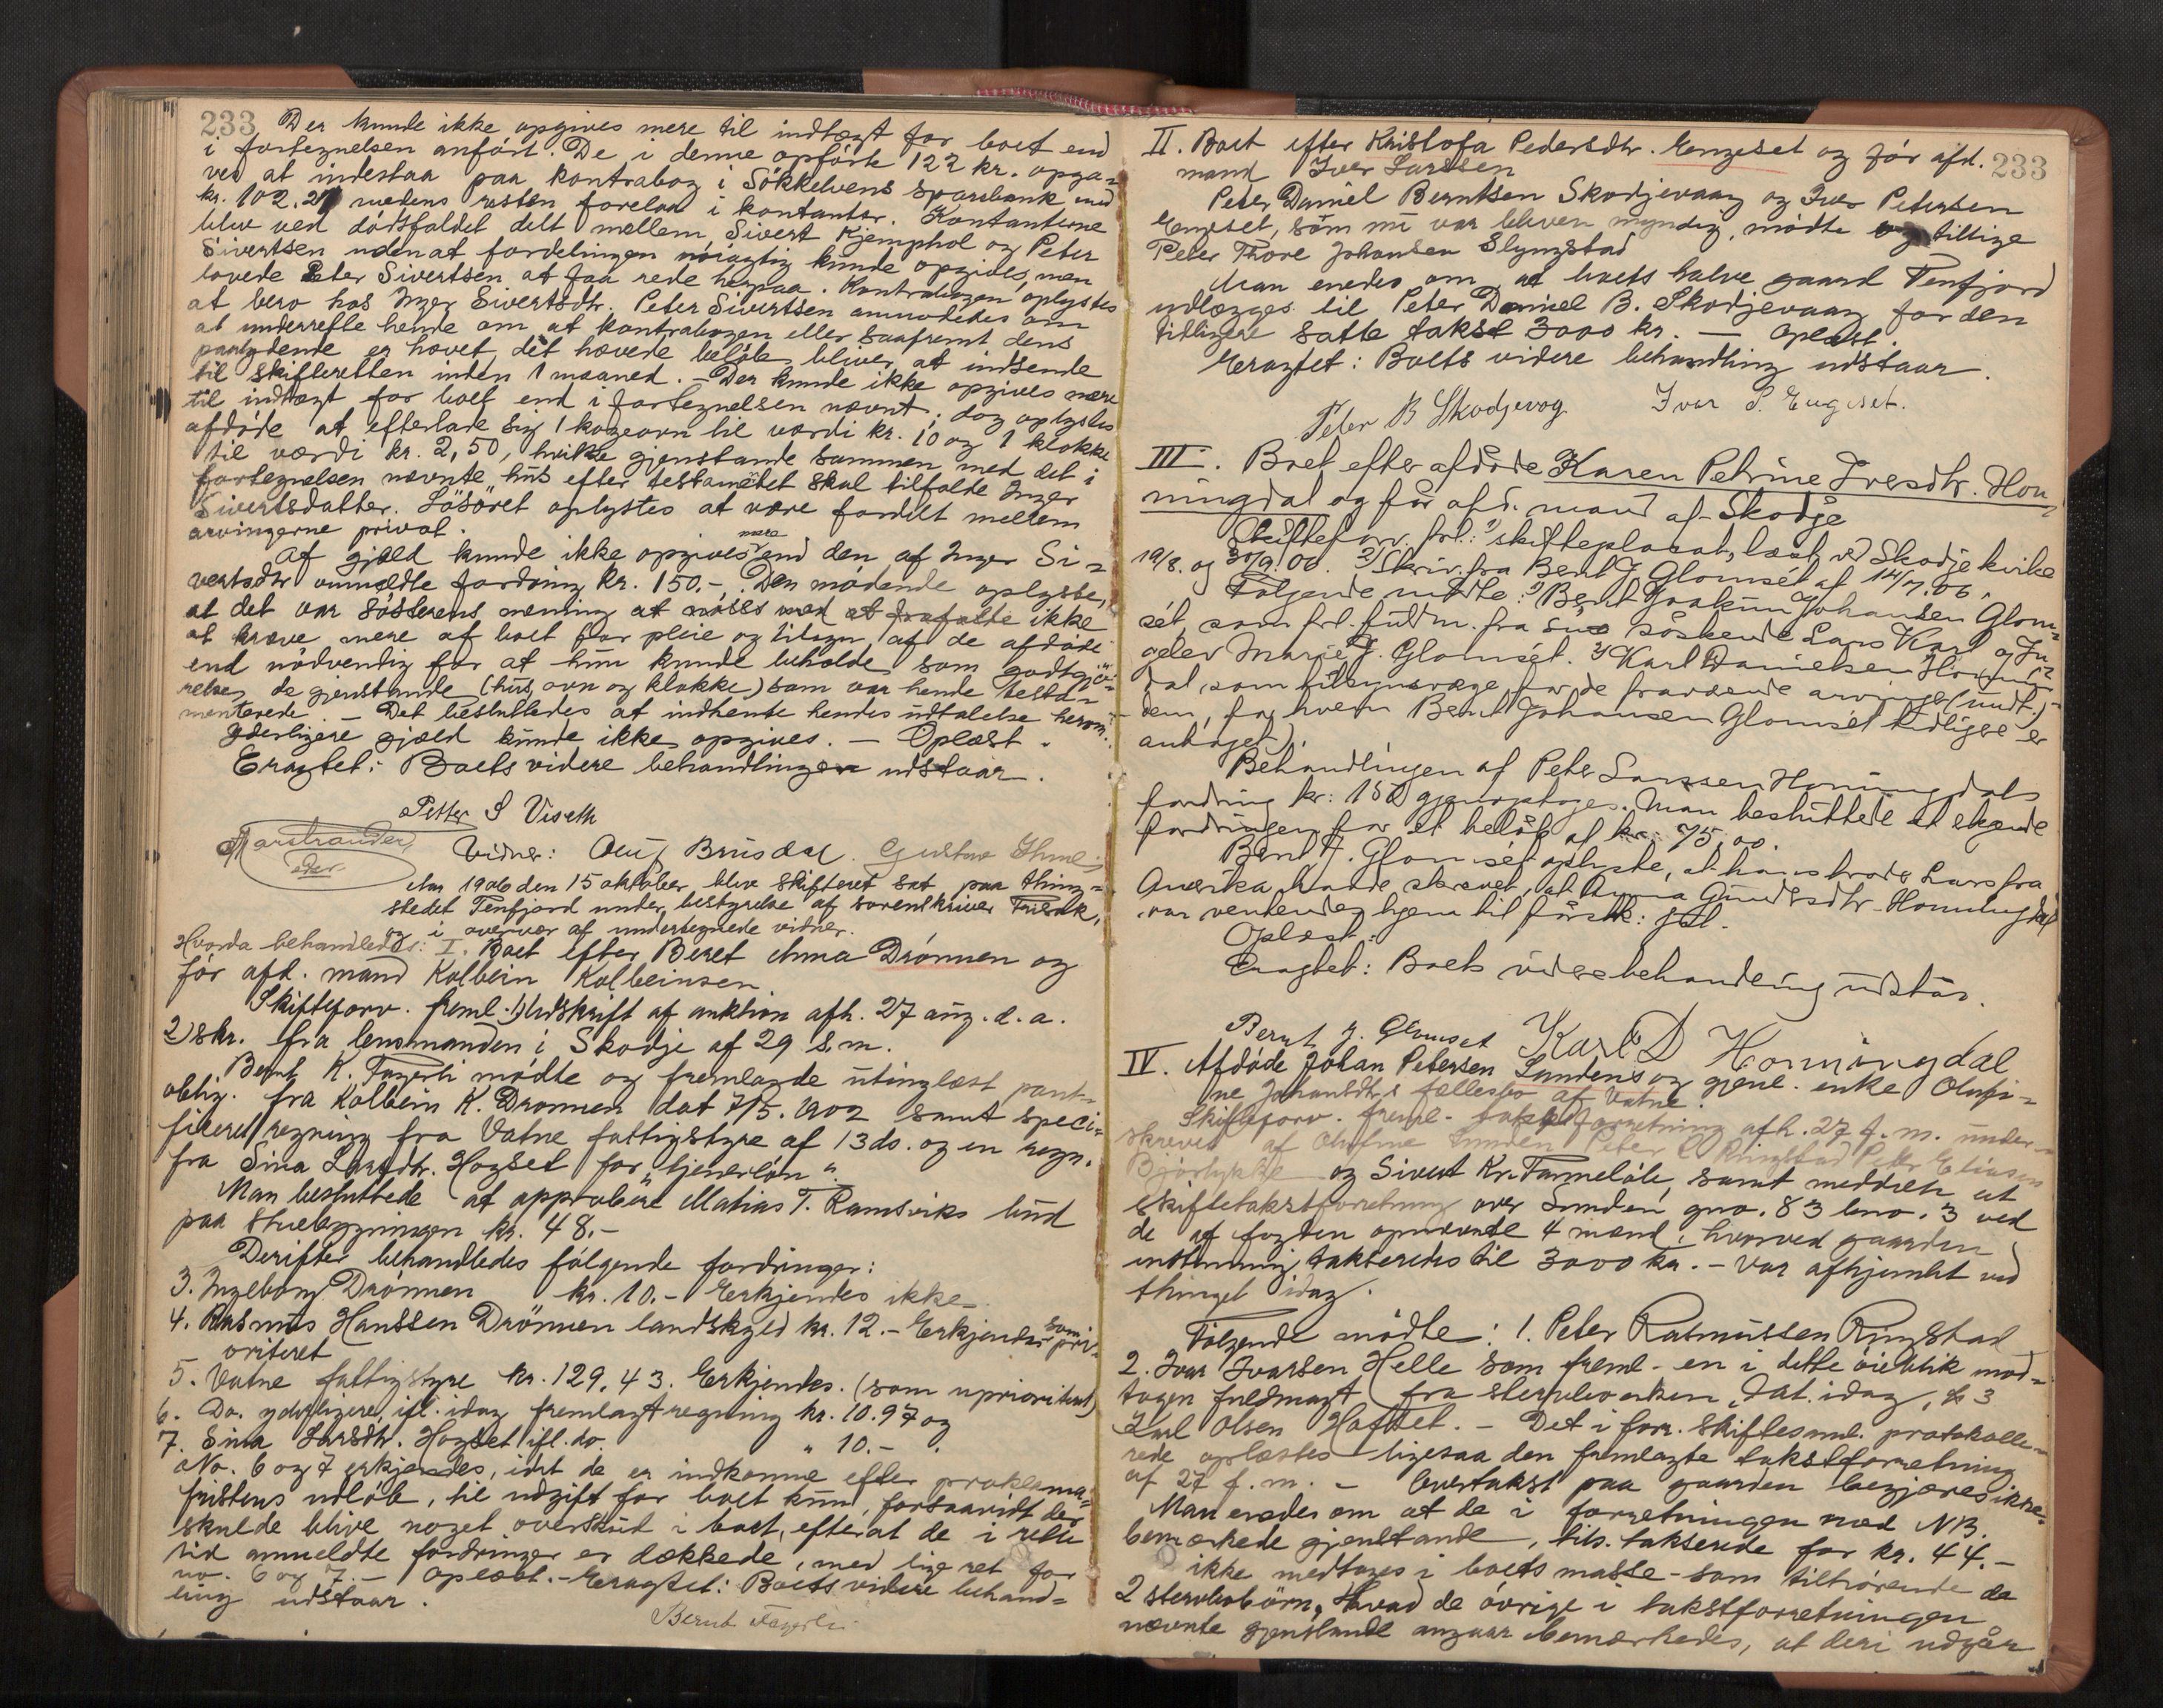 233
Der kunde ikke opgives mere til indtægt for boet end
i fortegnelsen anført. De i denne opførte 122 kr. opga-
ves at indestaa paa kontrabog i Søkkelvens sparebank med
kr. 102.21 medens resten forelaa i kontanter. Kontanterne
blev ved dødsfaldet delt mellem Sivert Kjemphol og Peter
Sivertsen uden at fordelingen nøiagtig kunde opgives, men
lovede Peter Sivertsen at faa rede herpaa. Kontrabogen oplystes
at bero hos Inger Sivertsdtr. Peter Sivertsen anmodedes om
at underrette hende om at kontrabogen eller saafremt dens
paalydende er hævet, det hævede beløb bliver at indsende
til skifteretten inden 1 maaned. - Der kunde ikke opgives mere
til indtægt for boet end i fortegnelsen nævnt; dog oplystes
afdøde at efterlade sig 1 kogeovn til værdi kr. 10 og 1 klokke
til værdi kr. 2,50, hvilke gjenstande sammen med det i
fortegnelsen nævnte hus efter testamentet skal tilfalde Inger
Sivertsdatter. Løsøret oplystes at være fordelt mellem
arvingerne privat.
Af gjæld kunde ikke opgives mere end den af Inger Si-
vertsdtr anmeldte fordring kr. 150.-. Den mødende oplyste,
at det var søsterens mening at ikke
at kræve mere af boet for pleie og tilsyn af de afdøde
end nødvendig for at hun kunde beholde som godtgjø-
relse de gjenstande (hus, ovn og klokke) som var hende testa-
menterede. - Det besluttedes at indhente hendes udtalelse herom.
Yderligere gjæld kunde ikke opgives. - Oplæst.
Eragtet: Boets videre behandling udstaar.
Petter S Viseth
Marstrander
Vidner: Oluf Brusdal. Gustav
Aar 1906 den 15 oktober blev skifteret sat paa thing-
stedet Tenfjord under bestyrelse af sorenskriver
og i overvær af undertegnede vidner.
Hvorda behandledes: I. Boet efter Beret Anna Drønnen og
før afd. mand Kolbein Kolbeinsen.
Skifteforv. freml. 1) Udskrift af auktion afh. 27 aug. d. a.
2) skr. fra lensmanden i Skodje af 29 s.m.
Bernt K. Fagerli mødte og fremlagde utinglæst pant-
oblig. fra Kolbein K. Drønnen dat 7/5. 1902 samt speci-
ficeret regning fra Vatne fattigstyre af 13 ds. og en regn.
fra Sina Larsdtr. Hogset for "tjenerløn".
Man besluttede at approbere Matias T. Ramsviks bud
paa stuebygningen kr. 48.-
Derefter behandledes følgende fordringer:
3. Ingeborg Drønnen kr. 10.- Erkjendes ikke.
4. Rasmus Hanssen Drønnen landskyld kr. 12.- Erkjendes som pri-
oriteret
5. Vatne fattigstyre kr. 129.43. Erkjendes. (som uprioritert)
6. Do. yderligere, ifl. idag fremlagt regning kr. 10.97 og
7. Sina Larsdtr. Hogset ifl. do. " 10.- .
No. 6 og 7 erkjendes, idet de er indkomne efter proklama-
fristens udløb, til udgift for boet kun, forsaavidt der
skulde blive noget overskud i boet, efterat de i rette
tid anmeldte fordringer er dækkede, med lige ret for
no. 6 og 7. - Oplæst. - Eragtet: Boets videre behand-
ling udstaar.
Bernt Fagerli
233
II. Boet efter Kristofa Pedersdtr. Engeset og før afd.
mand Iver Larssen
Peter Daniel Berntsen Skodjevaag og Iver Petersen
Engeset, som nu var bleven myndig, mødte og tillige
Peter Thore Johansen Slyngstad
Man enedes om at boets halve gaard Tenfjord
udlægges til Peter Daniel B. Skodjevaag for den
tidligere satte takst 3000 kr. - Oplæst.
Eragtet: Boets videre behandling udstaar.
Peter B Skodjevog. Ivar P. Engeset.
III. Boet efter afdøde Karen Petrine Iversdtr. Hon-
ningdal og før afd. mand af Skodje
Skifteforv. frl.: 1) skifteplacat, læst ved Skodje kirke
19/8. og 30/9. 06. 2) Skriv. fra Bernt J. Glomset af 14/7. 06.
Følgende mødte: 1) Bernt Joakim Johansen Glom-
set, som frl. fuldm. fra sine søskende Lars Karl og
Marie J. Glomset. 2) Karl Danielsen Honning-
dal, som tilsynsværge for de fraværende arvinger (undt.
dem, for hvem Bernt Johansen Glomset tidligere er
antaget).
Behandlingen af Peter Larssen Honningdals
fordring kr: 150 gjenoptoges. Man besluttede at erkjende
fordringen for et beløb af kr: 75,00.
Bernt J. Glomset oplyste, at hans broder Lars fra
Amerika havde skrevet, at Anna Gundersdtr. Honningdal
var ventendes hjem til førstk: jul.
Oplæst.
Eragtet: Boets videre behandling udstår.
Bernt J. Glomset Karl D Honningdal
IV. Afdøde Johan Petersen Lundens og gjenl. enke Olufi-
ne Johansdtr.s fællesbo af Vatne.
Skifteforv. freml. takstforretning afh. 27 f. m. under-
skrevet af Olufine Lunden, Peter R Ringstad Petter Eliassen
Bjørlykke og Sivert Kr. Tømmeløb, samt meddelte at
skiftetakstforretning over Lunden gno. 83 bno. 3 ved
de af fogden opnævnte 4 mænd, hvorved gaarden
enstemmig takseredes til 3000 kr. - var afhjemlet ved
thinget idag.
Følgende mødte: 1. Peter Rasmussen Ringstad
2. Ivar Ivarsen Helle som freml. en i dette øieblik mod-
tagen fuldmagt fra stervboenken, dat. idag, & 3
Karl Olsen Hafstet. - Det i forr. skiftesaml. protokolle-
rede oplæstes ligesaa den fremlagte takstforretning
af 27 f. m. - Overtakst paa gaarden begjæres ikke.
Man enedes om at de i forretningen med NB.
bemærkede gjenstande, tils. takserede for kr. 44.-
ikke medtages i boets masse - som tilhørende de
2 stervbobørn. Hvad de øvrige i takstforretningen
nævnte gjenstande angaar bemærkedes, at deri udgår